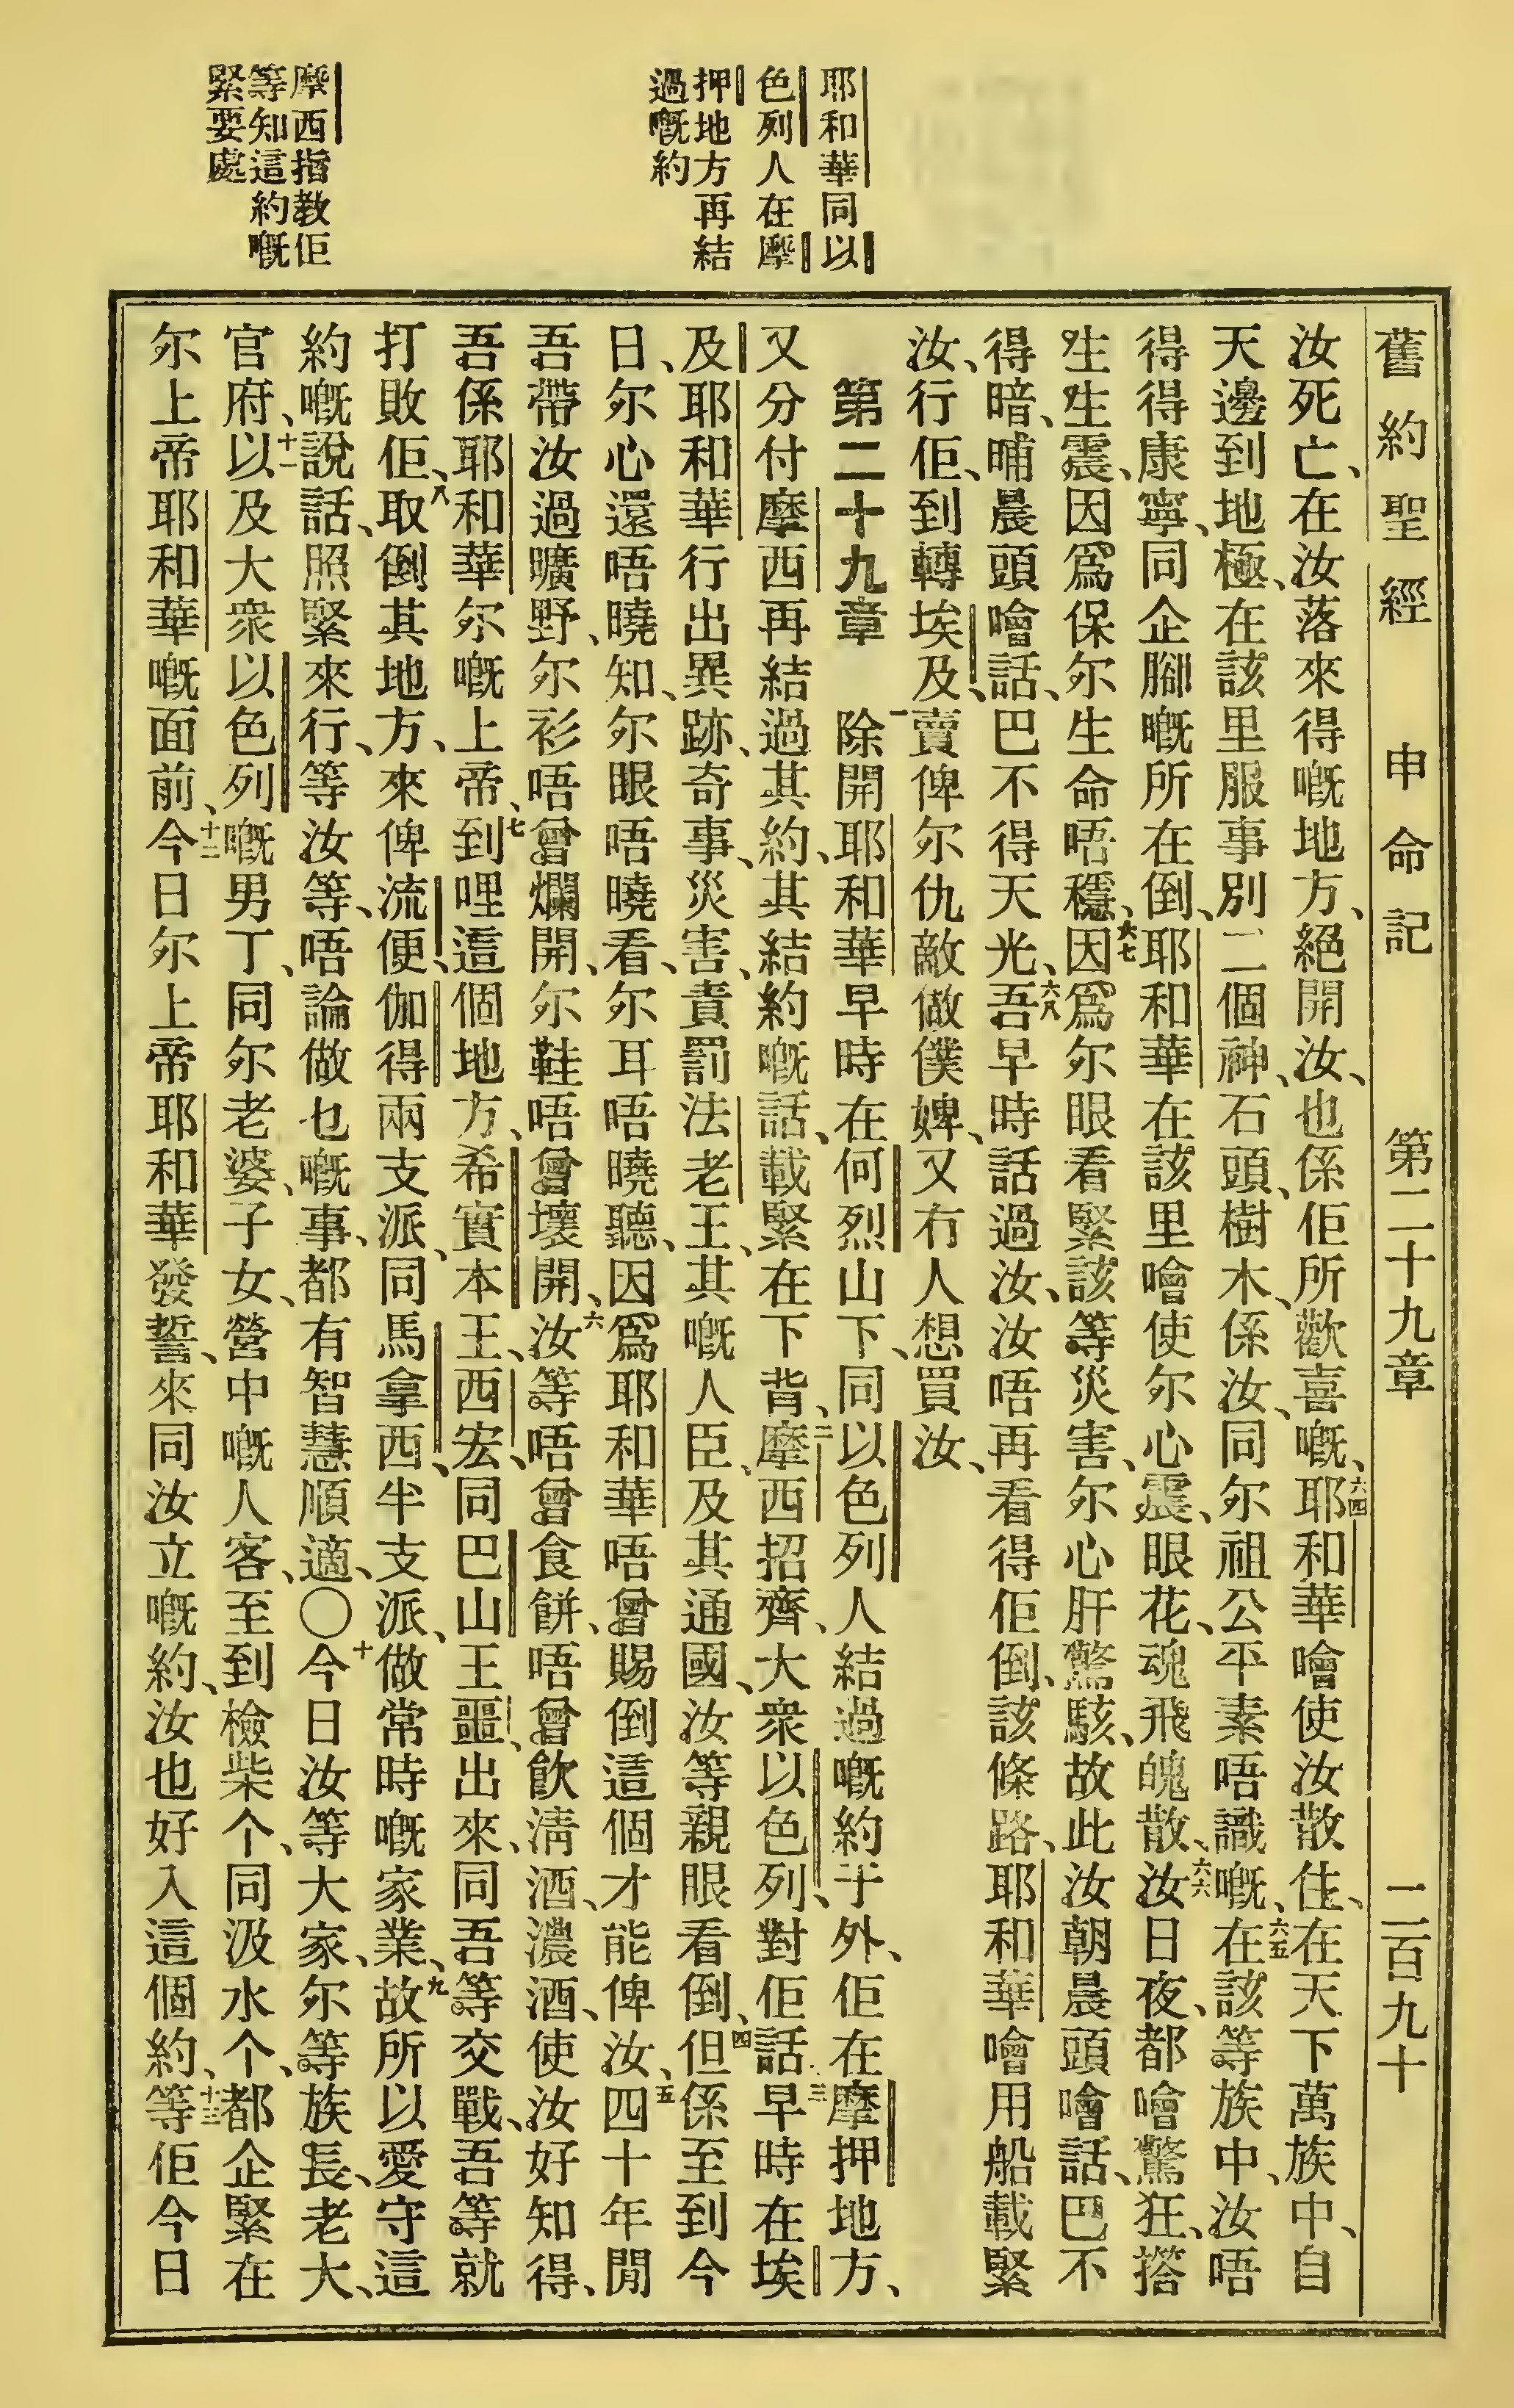 舊約聖經 申命記 第二十九章 二百九十
耶和華同以
色列人在摩
押地方再結
過嘅約
摩西指教佢
等知這約嘅
緊要處
汝死亡、在汝落來得嘅地方、絕開汝、也係佢所歡喜嘅、六四耶和華噲使汝散住、在天下萬族中、自
天邊到地極、在該里服事別二個神、石頭、樹木、係汝、同尔祖公平素唔識嘅、六五在該等族中、汝唔
得得康寧、同企腳嘅所在倒、耶和華在該里噲使尔心震、眼花、魂飛魄散、六六汝日夜、都噲驚狂、搭
生生震、因爲保尔生命唔穩、六七因爲尔眼看緊該等災害、尔心肝驚駭、故此汝朝晨頭噲話、巴不
得暗、晡晨頭噲話、巴不得天光、六八吾早時話過汝、汝唔再看得佢倒、該條路、耶和華噲用船載緊
汝、行佢、到轉埃及、賣俾尔仇敵做僕婢、又冇人想買汝、
第二十九章 一除開耶和華早時在何烈山下、同以色列人結過嘅約于外、佢在摩押地方、
又分付摩西再結過其約、其結約嘅話、載緊在下背、二摩西招齊、大衆以色列、對佢話、三早時在埃
及耶和華行出異跡、奇事、災害、責罰法老王、其嘅人臣、及其通國、汝等親眼看倒、四但係至到今
日、尔心還唔曉知、尔眼唔曉看、尔耳唔曉聽、因爲耶和華唔曾賜倒這個才能俾汝、五四十年間
吾帶汝過曠野、尔衫唔曾爛開、尔鞋唔曾壞開、六汝等唔曾食餅、唔曾飮淸酒、濃酒、使汝好知得、
吾係耶和華尔嘅上帝、七到哩這個地方、希實本王、西宏、同巴山王噩、出來、同吾等交戰、吾等就
打敗佢、八取倒其地方、來俾流便、伽得兩支派、同馬拿西、半支派、做常時嘅家業、九故所以愛守這
約嘅說話、照緊來行、等汝等、唔論做乜嘅事、都有智慧順適、〇十今日汝等大家、尔等族長、老大、
官府、十一以及大衆以色列嘅男丁、同尔老婆、子女、營中嘅人客、至到檢柴个、同汲水个、都企緊在
尔上帝耶和華嘅面前、十二今日尔上帝耶和華發誓、來同汝立嘅約、汝也好入這個約、十三等佢今日